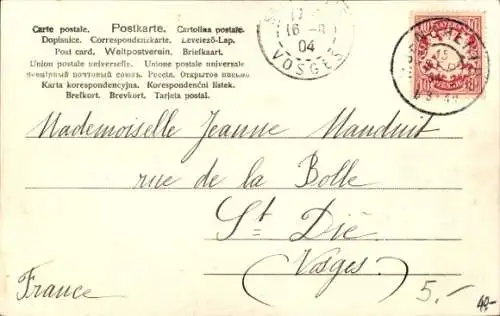 Carte postale. Postkarte. Cartolina postale.
Dopisnice. Correspondenzkarte. Levelező-Lap.
Post card. Weltpostverein. Briefkaart.
Union postale universelle. Unione postale universale
Всемірный почтовый союзъ. Россія. Открытое письмо
Karta korespondencyjna. Korespondenční listek.
Brefkort. Brevkort. Tarjeta postal.
16 -
04
VOSGES
10
10
15
Mademoiselle Jeanne Manduit
rue de la Bolle
St Dié
(Vosges)
France
5.-